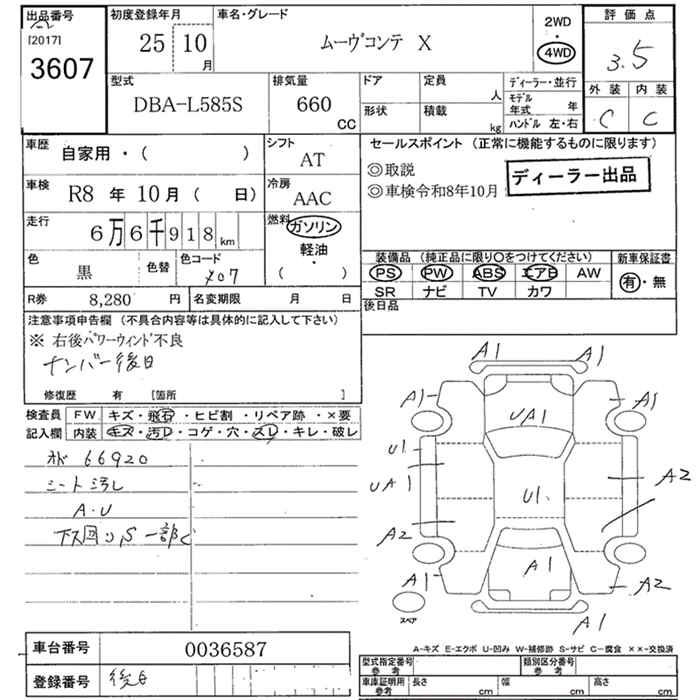 出品番号
[2017]
3607
初度登録年月
25 10
月
車名・グレード
ムーヴコンテ X
2WD
・
4WD
評価点
3.5
外装 内装
C C
型式
DBA-L585S
排気量
660
CC
ドア
形状
定員
人
積載
kg
ディーラー・並行
モデル
年式 年
ハンドル 左・右
車歴
自家用・( )
シフト
AT
車検
R8 年 10 月 ( 日)
冷房
AAC
走行
6万6千918km
燃料
ガソリン
軽油・
( )
色
黒
色替
色コード
X07
R券 8,280 円
名変期限 月 日
セールスポイント (正常に機能するものに限ります)
◎取説
◎車検令和8年10月
ディーラー出品
装備品 (純正品に限り○をつけてください)
PS PW ABS エアB AW
SR ナビ TV カワ
新車保証書
有・無
後日品
注意事項申告欄 (不具合内容等は具体的に記入して下さい)
※ 右後パワーウィンド不良
ナンバー後日
修復歴 有 [箇所 ]
検査員
記入欄
FW キズ・飛石・ヒビ割・リペア跡・×要
内装 キズ・汚レ・コゲ・穴・スレ・キレ・破レ
66920
シート汚レ
A・U
下回りS 一部C
A1
A1
A1
A1
UA1
U1
UA1
U1
A2
A2
A1
A1
A2
A1
スペア
A-キズ E-エクボ U-凹み W-補修跡 S-サビ C-腐食 ××-交換済
車台番号 0036587
登録番号 後日
型式指定番号
参考
類別区分番号
参考
車庫証明用
参考
長さ cm
幅 cm
高さ cm